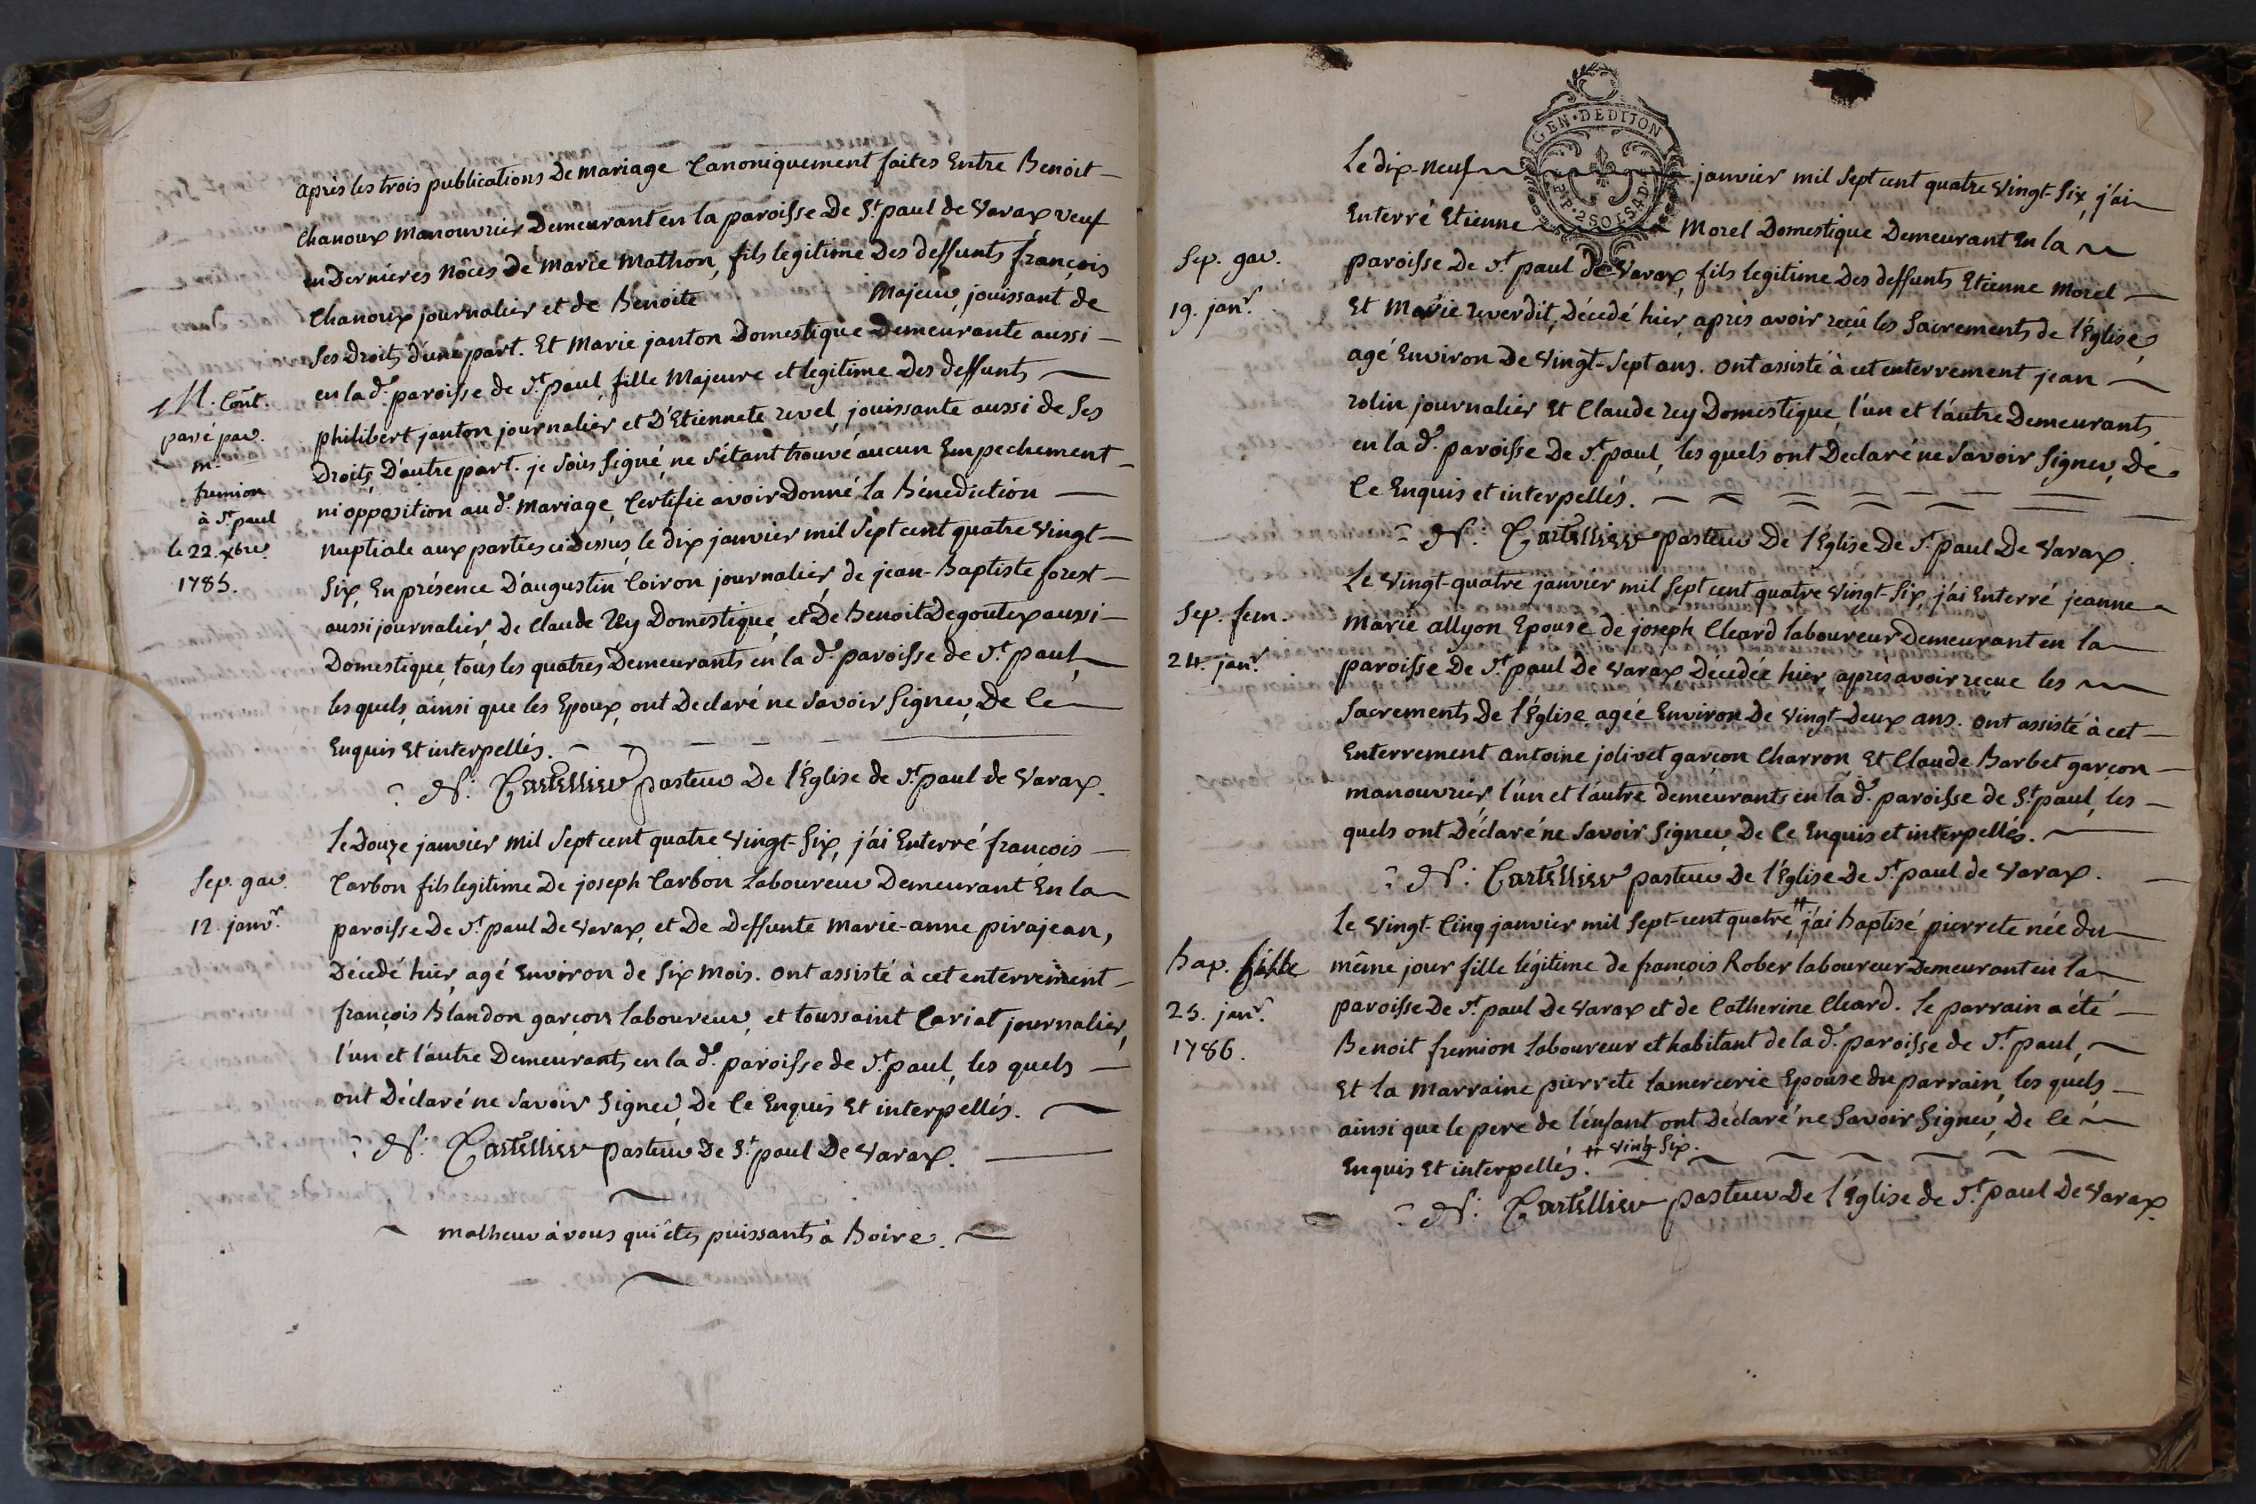 après les trois publications De mariage Canoniquement faites Entre Benoit
Chanoux manouvrier Demeurant en la paroisse De St. paul de Varax veuf
en Dernieres nôces de marie mathon, fils legitime Des deffunts françois
Chanoux journalier et de Benoite majeur, jouissant de
ses Droits, d'une part. Et Marie janton Domestique Demeurante aussi
en la de. paroisse de St. paul, fille Majeure et legitime Des deffunts
philibert janton journalier et D'Etiennete revel, jouissante aussi de ses
Droits, D'autre part. je soûs signé, ne s'étant trouvé aucun Empechement
ni opposition au d. mariage, Certifie avoir Donné la Bénédiction
nuptiale aux parties ci dessus, le dix janvier mil sept cent quatre vingt
six, En présence D'augustin Coiron journalier, de jean-Baptiste forest
aussi journalier, De Claude Rey Domestique, et De Benoit Degoutex aussi
Domestique, toûs les quatres Demeurants en la de. paroisse de St. paul,
les quels, ainsi que les Epoux, ont Declaré ne savoir signer, De Ce
Enquis Et interpellés.
N: Cartellier pasteur De l'Eglise de St. paul de Varax.
M. Cont.
passé par
m.
fremion
à St. paul
le 22. xbre
1785.
Le Douze janvier mil sept cent quatre vingt-six, j'ai Enterré françois
Carbon fils legitime De joseph Carbon Laboureur Demeurant En la
paroisse de St. paul De Varax, et De Deffunte Marie-anne pirajean,
Décedé hier, agé Environ de six mois. ont assisté à cet enterrement
françois Blandon garçon laboureur, et toussaint Cariat journalier,
l'un et l'autre Demeurants en la de. paroisse de St. paul, les quels
ont Déclaré ne savoir signer, De Ce Enquis Et interpellés.
N: Cartellier pasteur De St. paul De Varax.
Sep. gar.
12. janvr.
malheur à vous qui êtes puissants à Boire.
GEN. DE DIJON
2 SOLS 4 D
Le dix-neuf janvier mil sept cent quatre vingt-six, j'ai
Enterré Etienne Morel Domestique Demeurant En la
paroisse De St. paul de Varax, fils legitime Des deffunts Etienne Morel
Et Marie reverdit, Décedé hier, après avoir reçû les Sacrements de l'Eglise,
agé Environ De vingt-sept ans. ont assisté à cet enterrement jean
rolin journalier Et Claude rey Domestique, l'un et l'autre Demeurants
en la de. paroisse De St. paul, les quels ont Declaré ne savoir signer, De
Ce Enquis et interpellés.
N: Cartellier pasteur De l'Eglise De St. paul De Varax.
Sep. gar.
19. janr.
Le vingt-quatre janvier mil sept cent quatre vingt-six, j'ai Enterré jeanne
Marie allyon Epouse de joseph Cleard laboureur Demeurant en la
paroisse De St. paul De Varax Décedée hier, après avoir reçue les
Sacrements De l'Eglise, agée Environ De vingt-Deux ans. ont assisté à cet
Enterrement antoine jolivet garçon Charron Et Claude Barbet garçon
manouvrier, l'un et l'autre demeurants en la de. paroisse de St. paul, les
quels ont Déclaré ne savoir signer, De Ce Enquis et interpellés.
N: Cartellier pasteur De l'Eglise De St. paul de Varax.
Sep. fem.
24. janr.
Le vingt-Cinq janvier mil sept-cent quatre # j'ai Baptisé pierrete née du
même jour fille légitime de françois Rober laboureur Demeurant en la
paroisse De St. paul de Varax et de Catherine Cleard. le parrain a été
Benoit fremion laboureur et habitant de la de. paroisse de St. paul,
Et la marraine pierrete lamercerie Epouse du parrain, les quels
ainsi que le pere de l'enfant ont Déclaré ne savoir signer, De Ce
Enquis Et interpellés. # vingt-six.
N: Cartellier pasteur De l'Eglise de St. paul De Varax.
Bap. fille
25. janr.
1786.